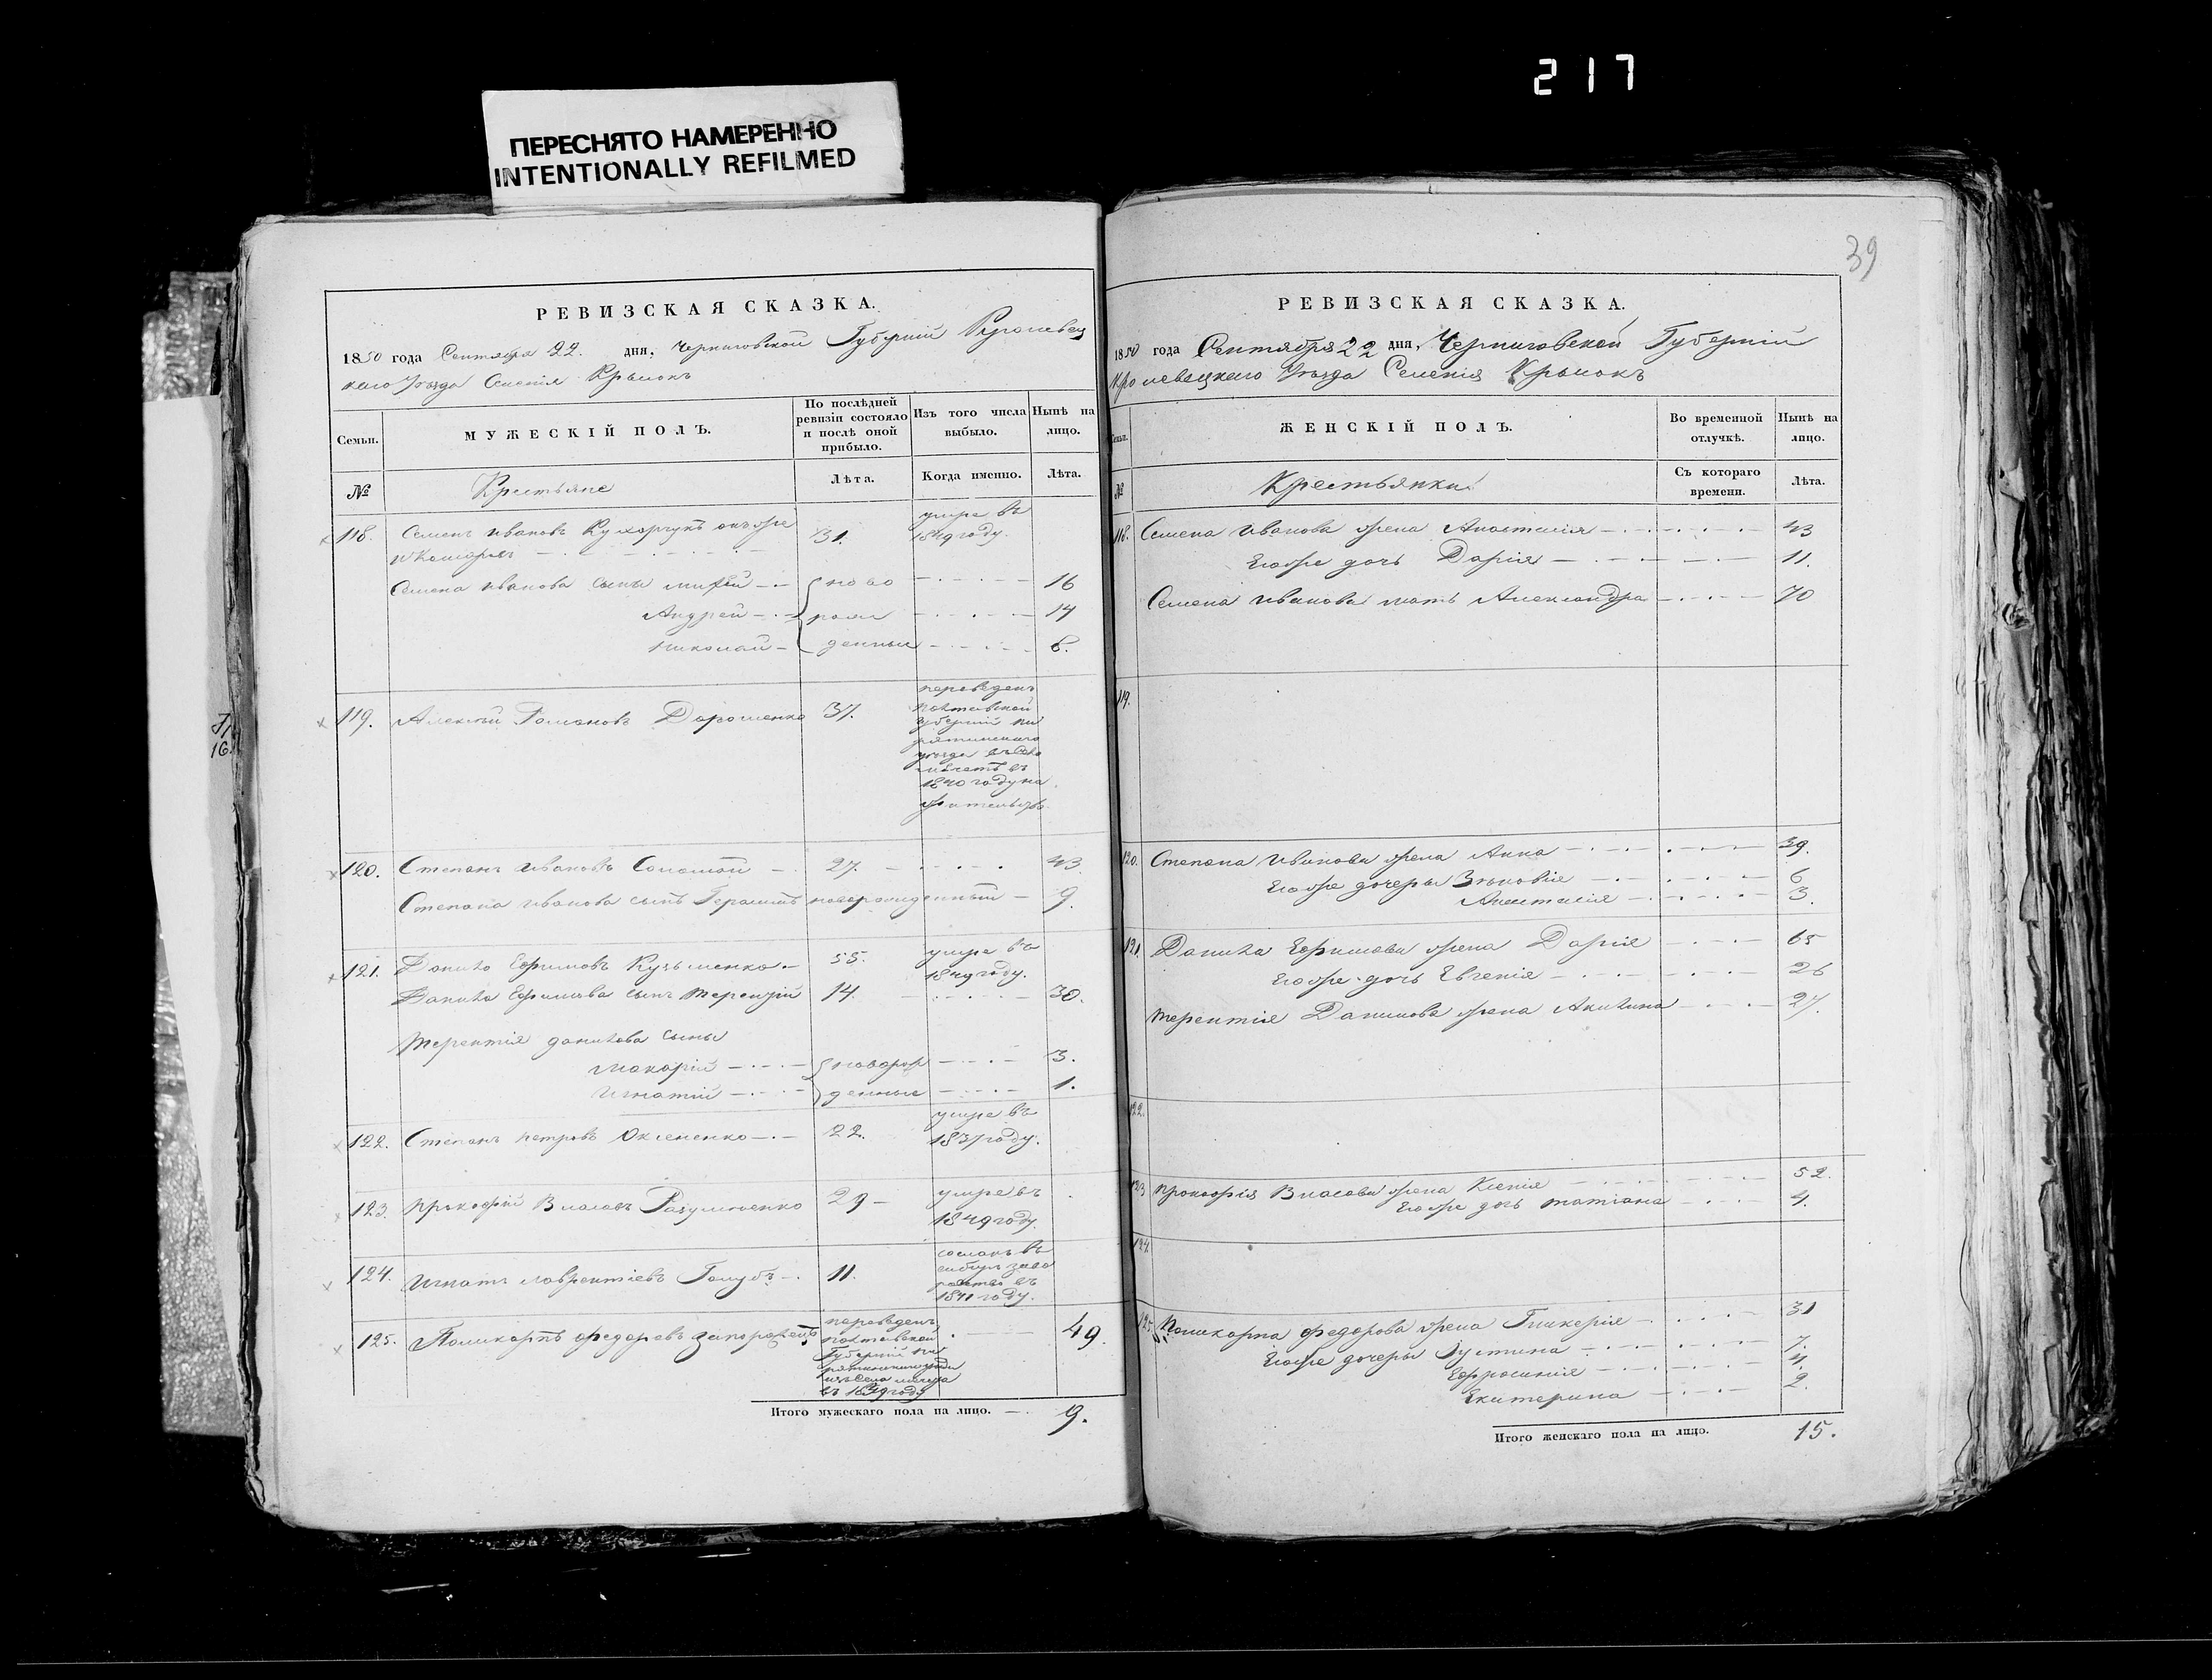 217
ПЕРЕСНЯТО НАМЕРЕННО
INTENTIONALLY REFILMED
39
РЕВИЗСКАЯ СКАЗКА.
1850 года Сентября 22. дня, Черниговской Губерніи Кролевец
каго Уѣзда Селенія
Семьи.
МУЖЕСКІЙ ПОЛЪ.
По послѣдней
ревизіи состояло
и послѣ оной
прибыло.
Изъ того числа
выбыло.
Нынѣ на
лицо.
№
Крестьяне
Лѣта.
Когда именно.
Лѣта.
118. Семенъ Ивановъ онъ же 31. умре въ
1849 году.
Семена Иванова сыны ново 16
Андрей рож 14
Николай денные
119. Алексѣй Романовъ Дорошенко 37. переведенъ
Полтавской
Губерніи Пи
рятинскаго
уѣзда
въ
1840 году на
жительство
120. Степанъ Ивановъ 27. 43.
Степана Иванова сынъ новорожденный 9.
121. Данило Ефимовъ Кузьменко 55. умре въ
1849 году.
Данила Ефимова сынъ Терентій 14. 30.
Терентія Данилова сыны
Макарій новорож 3.
Игнатій денные 1.
122. Степанъ Петровъ 22. умре въ
1837 году.
123. Прокофій Власовъ 29 умре въ
1849 году.
124. Игнатъ Лаврентіевъ Голубъ 11. сосланъ въ
сибирь за во
ровство въ
1841 году.
125. Поликарпъ Федоровъ Запорожецъ переведенъ 49.
Полтавской
Губерніи Пи
рятинскаго уѣзда
изъ села
въ году
Итого мужескаго пола на лицо. 9.
РЕВИЗСКАЯ СКАЗКА.
1850 года Сентября 22 дня, Черниговской Губерніи
Кролевецкаго Уѣзда Селенія
Семьи.
ЖЕНСКІЙ ПОЛЪ.
Во временной
отлучкѣ.
Нынѣ на
лицо.
№
Крестьянки
Съ котораго
времени.
Лѣта.
118. Семена Иванова жена Анастасія 43
Егоже дочь Дарія 11.
Семена Иванова мать Александра 70
119.
120. Степана Иванова жена Анна 39.
Егоже дочеры Зѣновія 6
Анастасія 3.
121. Данила Ефимова жена Дарія 65
Егоже дочь Евгенія 26
Терентія Данилова жена Акилина 27.
122.
123 Прокофія Власова жена Ксенія 52.
Егоже дочь Татіана 4.
124.
125. Поликарпа Федорова жена Гликерія 31
Егоже дочеры Іустина 7.
Ефросинія 4.
Екатерина 2.
Итого женскаго пола на лицо. 15.